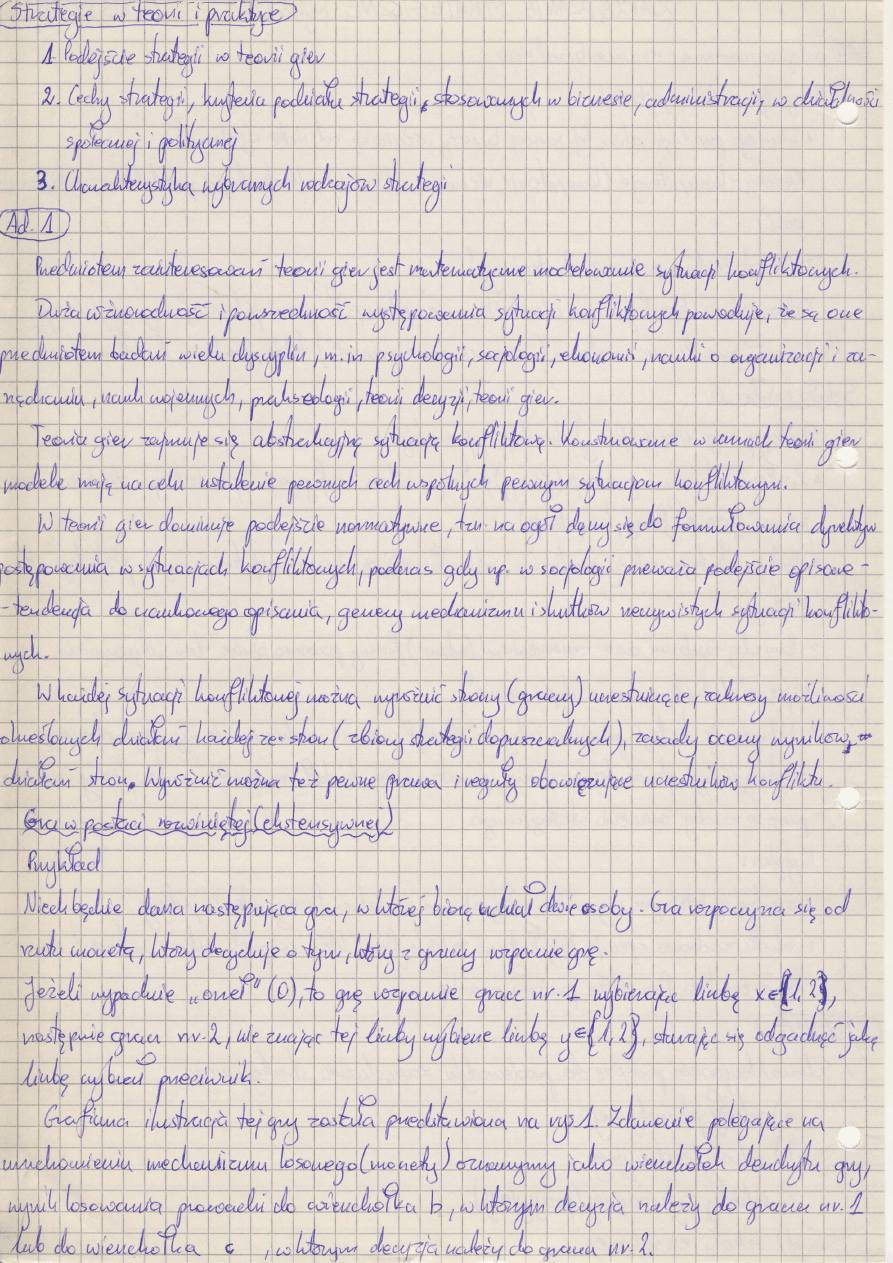 Strategie w teorii i praktyce
1. Podejście strategii w teorii gier
2. Cechy strategii, kryteria podziału strategii, stosowanych w biznesie, administracji, w działalności
społecznej i politycznej
3. Charakterystyka wybranych rodzajów strategii
Ad. 1
Przedmiotem zainteresowań teorii gier jest matematyczne modelowanie sytuacji konfliktowych.
Duża różnorodność i powszechność występowania sytuacji konfliktowych powoduje, że są one
przedmiotem badań wielu dyscyplin, m.in psychologii, socjologii, ekonomii, nauki o organizacji i za-
rządzaniu, nauk wojennych, prakseologii, teorii decyzji, teorii gier.
Teoria gier zajmuje się abstrakcyjną sytuacją konfliktową. Konstruowane w ramach teorii gier
modele mają na celu ustalenie pewnych cech wspólnych pewnym sytuacjom konfliktowym.
W teorii gier dominuje podejście normatywne, tzn. na ogół dąży się do formułowania dyrektyw
postępowania w sytuacjach konfliktowych, podczas gdy np. w socjologii przeważa podejście opisowe -
- tendencja do naukowego opisania, genezy mechanizmu i skutków rzeczywistych sytuacji konflikto-
wych.
W każdej sytuacji konfliktowej można wyróżnić strony (graczy) uczestniczące, zakresy możliwości
określonych działań każdej ze stron (zbiory strategii dopuszczalnych), zasady oceny wyników
działań stron. Wyróżnić można też pewne prawa i reguły obowiązujące uczestników konfliktu.
Gra w postaci rozwiniętej (ekstensywnej)
Przykład
Niech będzie dana następująca gra, w której biorą udział dwie osoby. Gra rozpoczyna się od
rzutu monetą, który decyduje o tym, który z graczy rozpocznie grę.
Jeżeli wypadnie „orzeł" (O), to grę rozpocznie gracz nr. 1 wybierając liczbę x∈{1,2},
następnie gracz nr. 2, nie znając tej liczby wybierze liczbę y∈{1,2}, starając się odgadnąć jaką
liczbę wybrał przeciwnik.
Graficzna ilustracja tej gry została przedstawiona na rys 1. Zdarzenie polegające na
uruchomieniu mechanizmu losowego (monety) oznaczymy jako wierzchołek dendrytu gry,
wynik losowania prowadzi do wierzchołka b, w którym decyzja należy do gracza nr. 1
lub do wierzchołka c , w którym decyzja należy do gracza nr. 2.